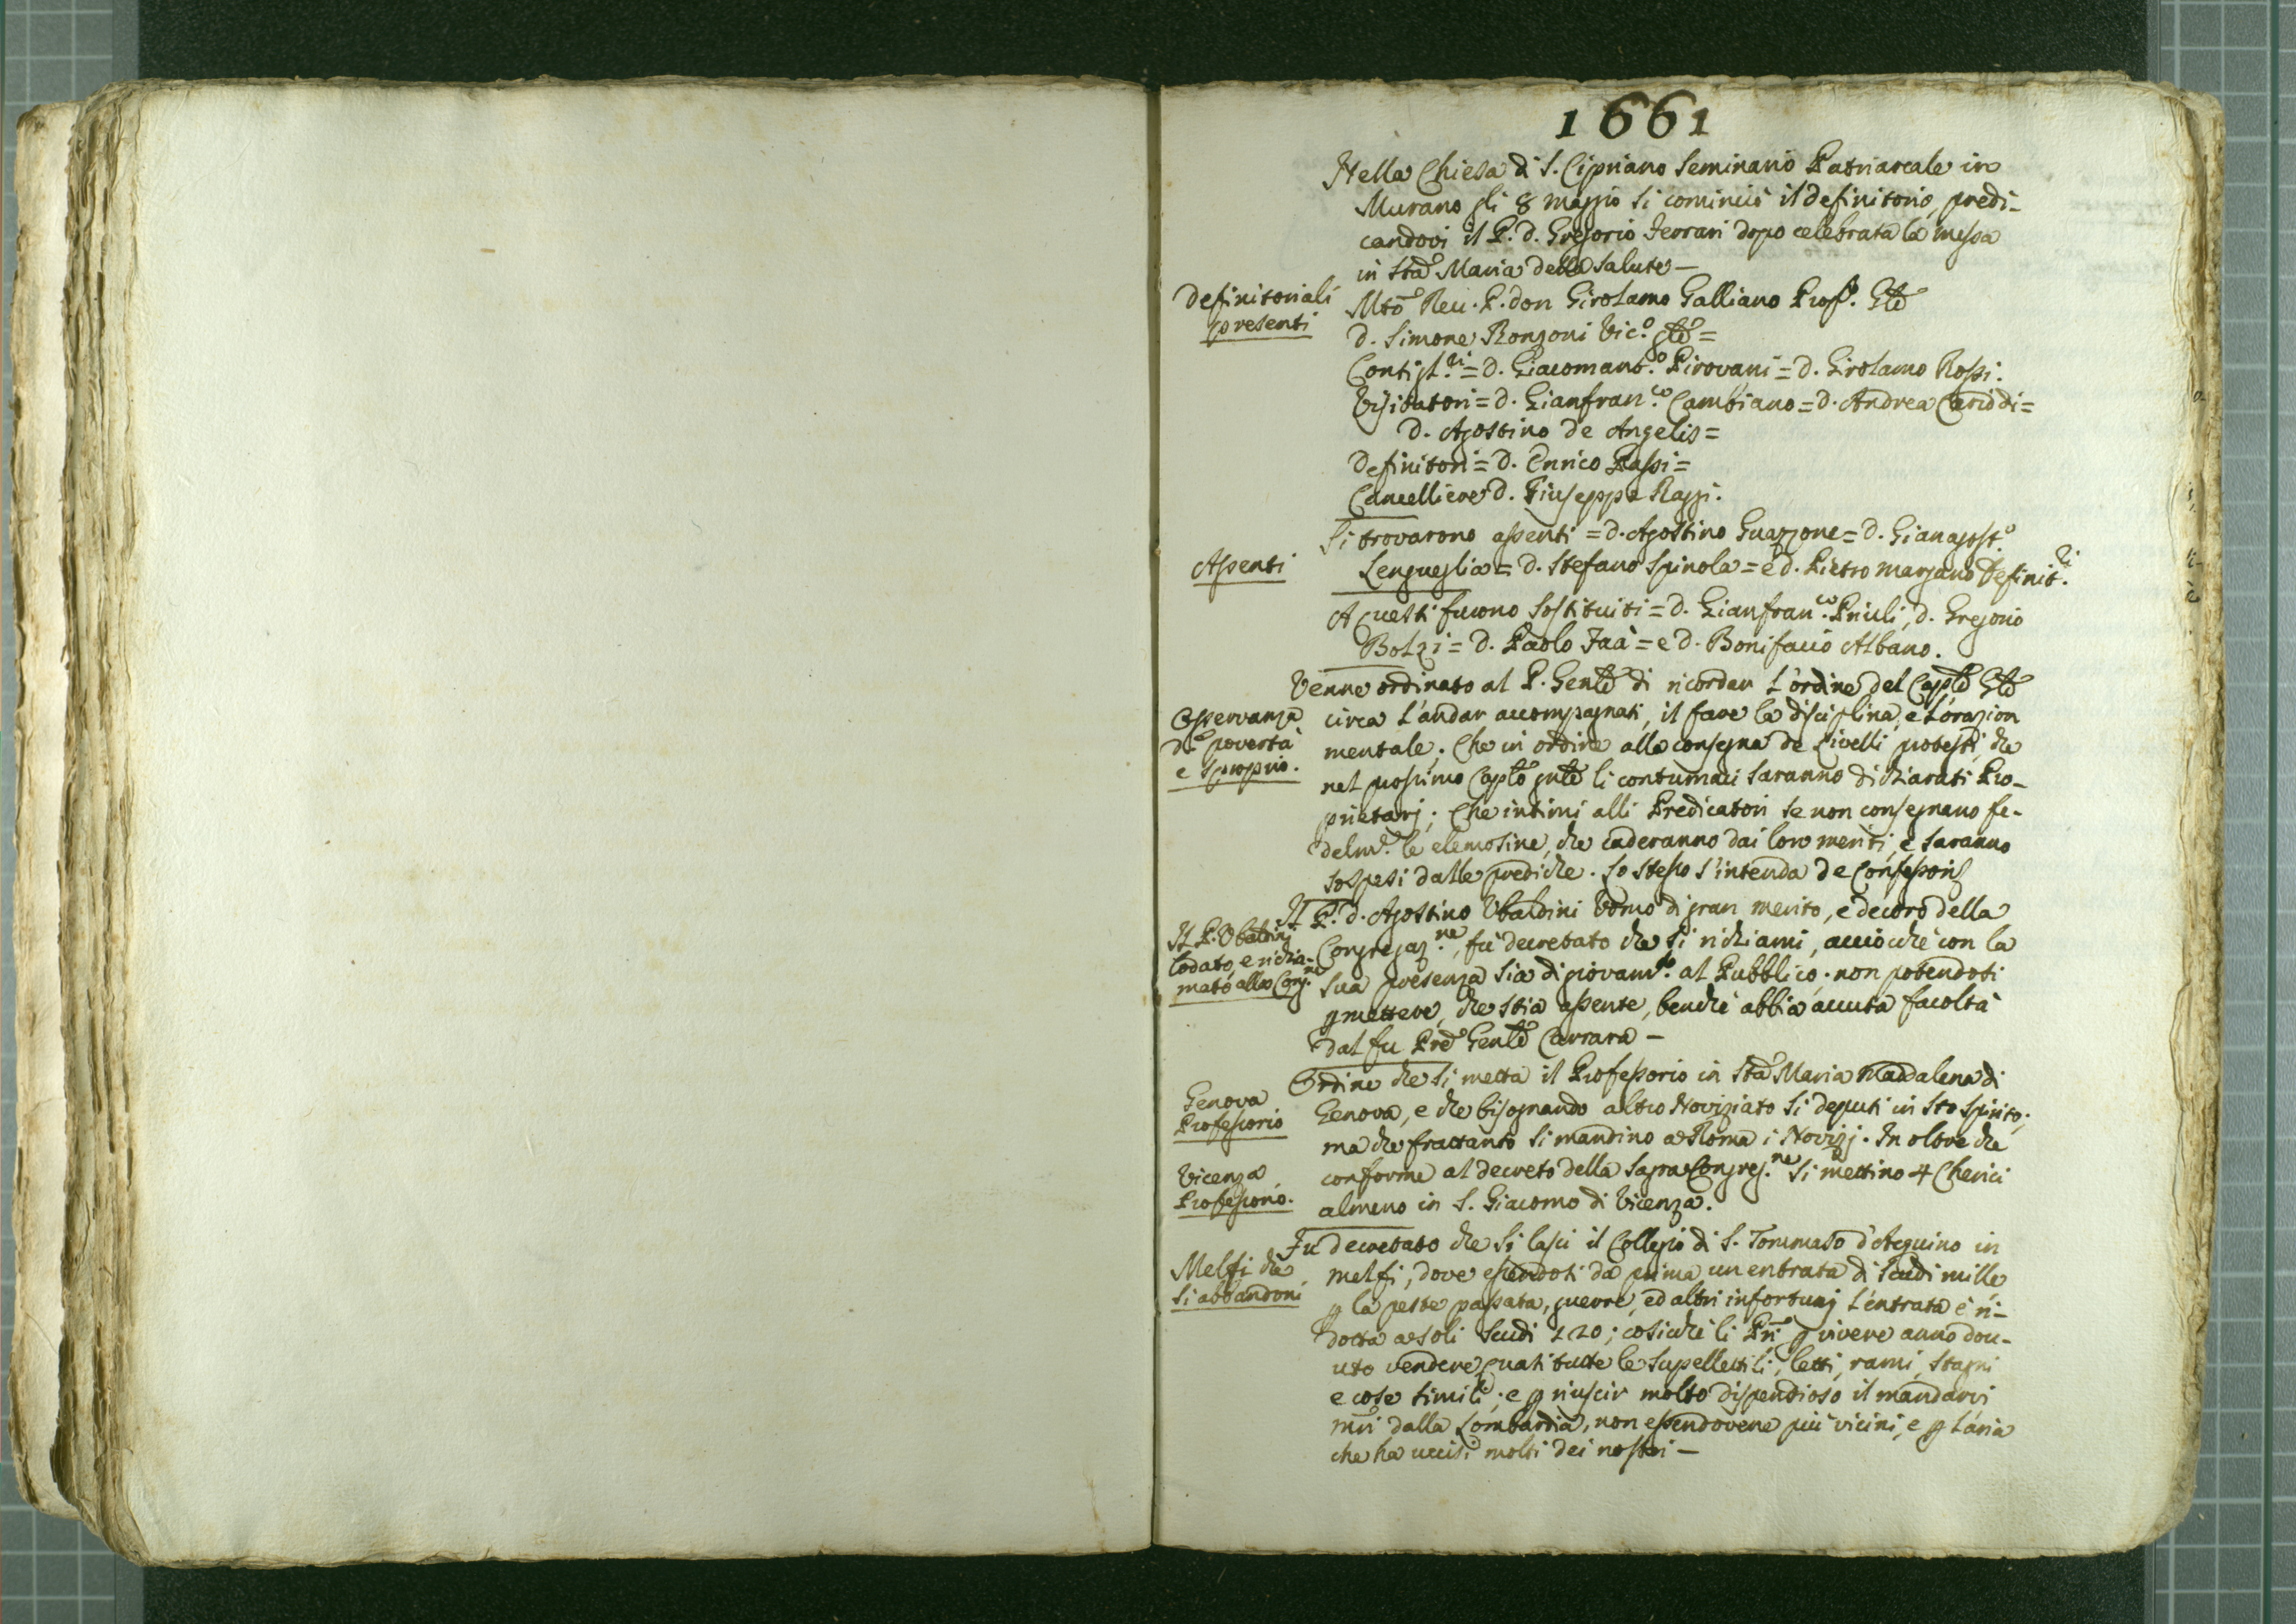 1661
Nella Chiesa di S. Cipriano Seminario Patriarcale in
Murano gli 8 maggio si cominciò il definitorio, predi-
candovi il P. d. Gregorio Ferrari dopo celebrata la messa
in Sta Maria della Salute —
Definitoriali
presenti
Mto Rev. P. don Girolamo Galliano Prop.° Gle
d. Simone Ronzoni Vic.° gle =
Consigl.ri = d. Giacomant.° Pirovani = d. Girolamo Rossi.
Visitatori = d. Gianfran.co Cambiano = d. Andrea Cariddi =
d. Agostino de Angelis =
Definitori = d. Enrico Bassi =
Cancelliere d. Giuseppe Razzi.
Assenti
Si trovarono assenti = d. Agostino Guazzone = d. Gianagost.°
Lengueglia = d. Stefano Spinola = e d. Pietro Marzano Definit.ri
A questi furono sostituiti = d. Gianfran.co Priuli, d. Gregorio
Bolzi = d. Paolo Faà = e d. Bonifacio Albano.
Osservanza
d.ª povertà
e sproprio.
Venne ordinato al P. Genle di ricordar l'ordine del Caplo Gle
circa l'andar accompagnati, il fare la disciplina, e l'orazion
mentale. Che in ordine alla consegna de Livelli protesti, che
nel prossimo Caplo gnle li contumaci saranno dichiarati Pro-
prietarj; Che intimi alli Predicatori se non consegnano fe-
delm.e le elemosine, che caderanno dai loro meriti, e saranno
sospesi dalle prediche. Lo stesso s'intenda de Confessori
Il P. Ubaldini
lodato, e richia-
mato alla Cong.ne
Il P. d. Agostino Ubaldini Uomo di gran merito, e decoro della
Congregaz.ne, fù decretato che si richiami, acciocchè con la
sua presenza sia di giovam.to al Pubblico. non potendosi
pmettere, che stia assente, benchè abbia avuta facoltà
dal fu Pre Genle Carrara —
Genova
Professorio
Ordine che si metta il Professorio in Sta Maria Maddalena di
Genova, e che bisognando altro Noviziato si deputi in Sto Spirito;
ma che frattanto si mandino a Roma i Novizj. In oltre che
Vicenza
Professorio.
conforme al decreto della Sagra Congreg.ne si mettino 4 Cherici
almeno in S. Giacomo di Vicenza.
Melfi che
si abbandoni
Fù decretato che si lasci il Collegio di S. Tommaso d'Aquino in
Melfi, dove essendosi da prima un entrata di scudi mille,
p la peste passata, guerre, ed altri infortunj l'entrata è ri-
dotta a soli scudi 120; cosicchè li Pri p vivere anno dou-
uto vendere quasi tutte le supellettili, letti, rami, stagni
e cose simili; e p riuscir molto dispendioso il mandarvi
mri dalla Lombardia, non essendovene più vicini, e p l'aria
che ha uccisi molti dei nostri —